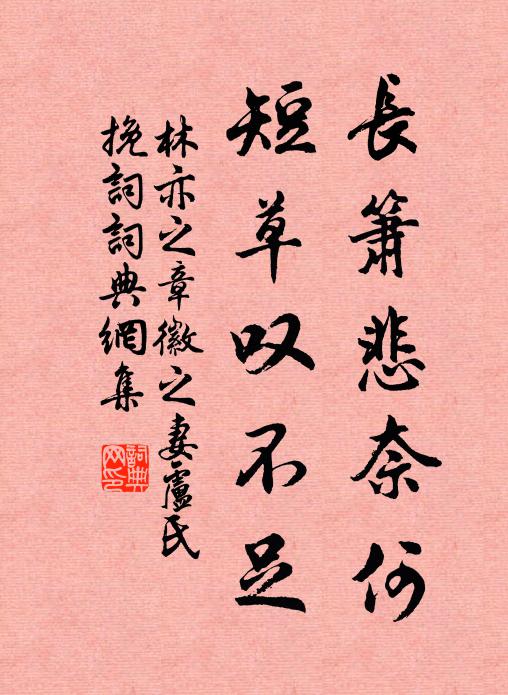 長簫悲奈何
短草叹不足
林亦之章徽之妻盧氏
挽詞詞典網集
詞典
网印